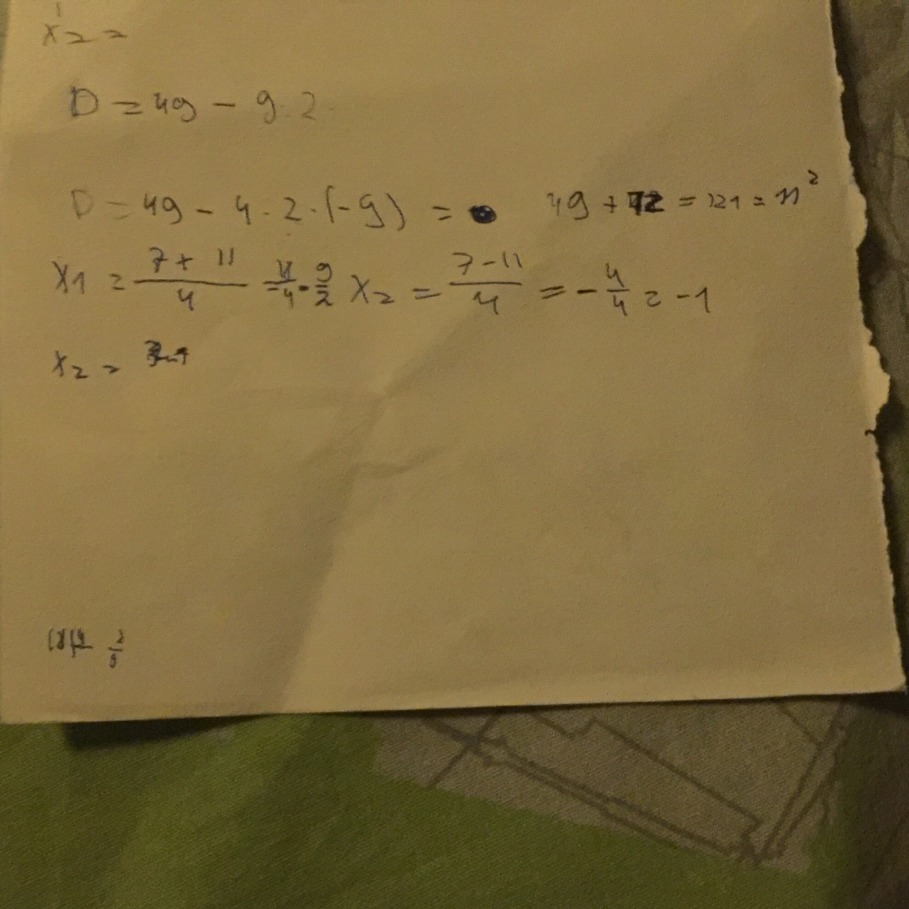 x₂ =
D = 49 - 9.2
D = 49 - 4.2.(-9) = 49 + 72 = 121 = 11²
x1 = (7 + 11)/4 = 9/2 x₂ = (7 - 11)/4 = - 4/4 = -1
x₂ =